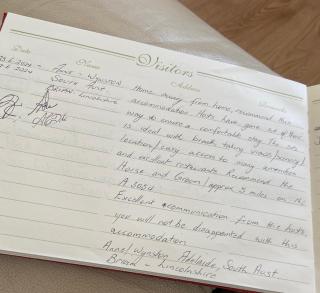 Visitors
Date
Name
Address
Remarks
2024 - Anne - Wynston
2024 South Aust
Brian Lincolnshire
Home away from home, recommend this
accommodation. Hosts have gone out of their
way to ensure a comfortable stay. The site
is ideal with breath taking views/scenery/
location/easy access to many amenities
and excellent restaurants. Recommend the
Horse and Groom/approx 5 miles on the
A
Excellent communication from the hosts,
you will not be disappointed with this
accommodation.
Anne/Wynston Adelaide, South Aust
Brian - Lincolnshire